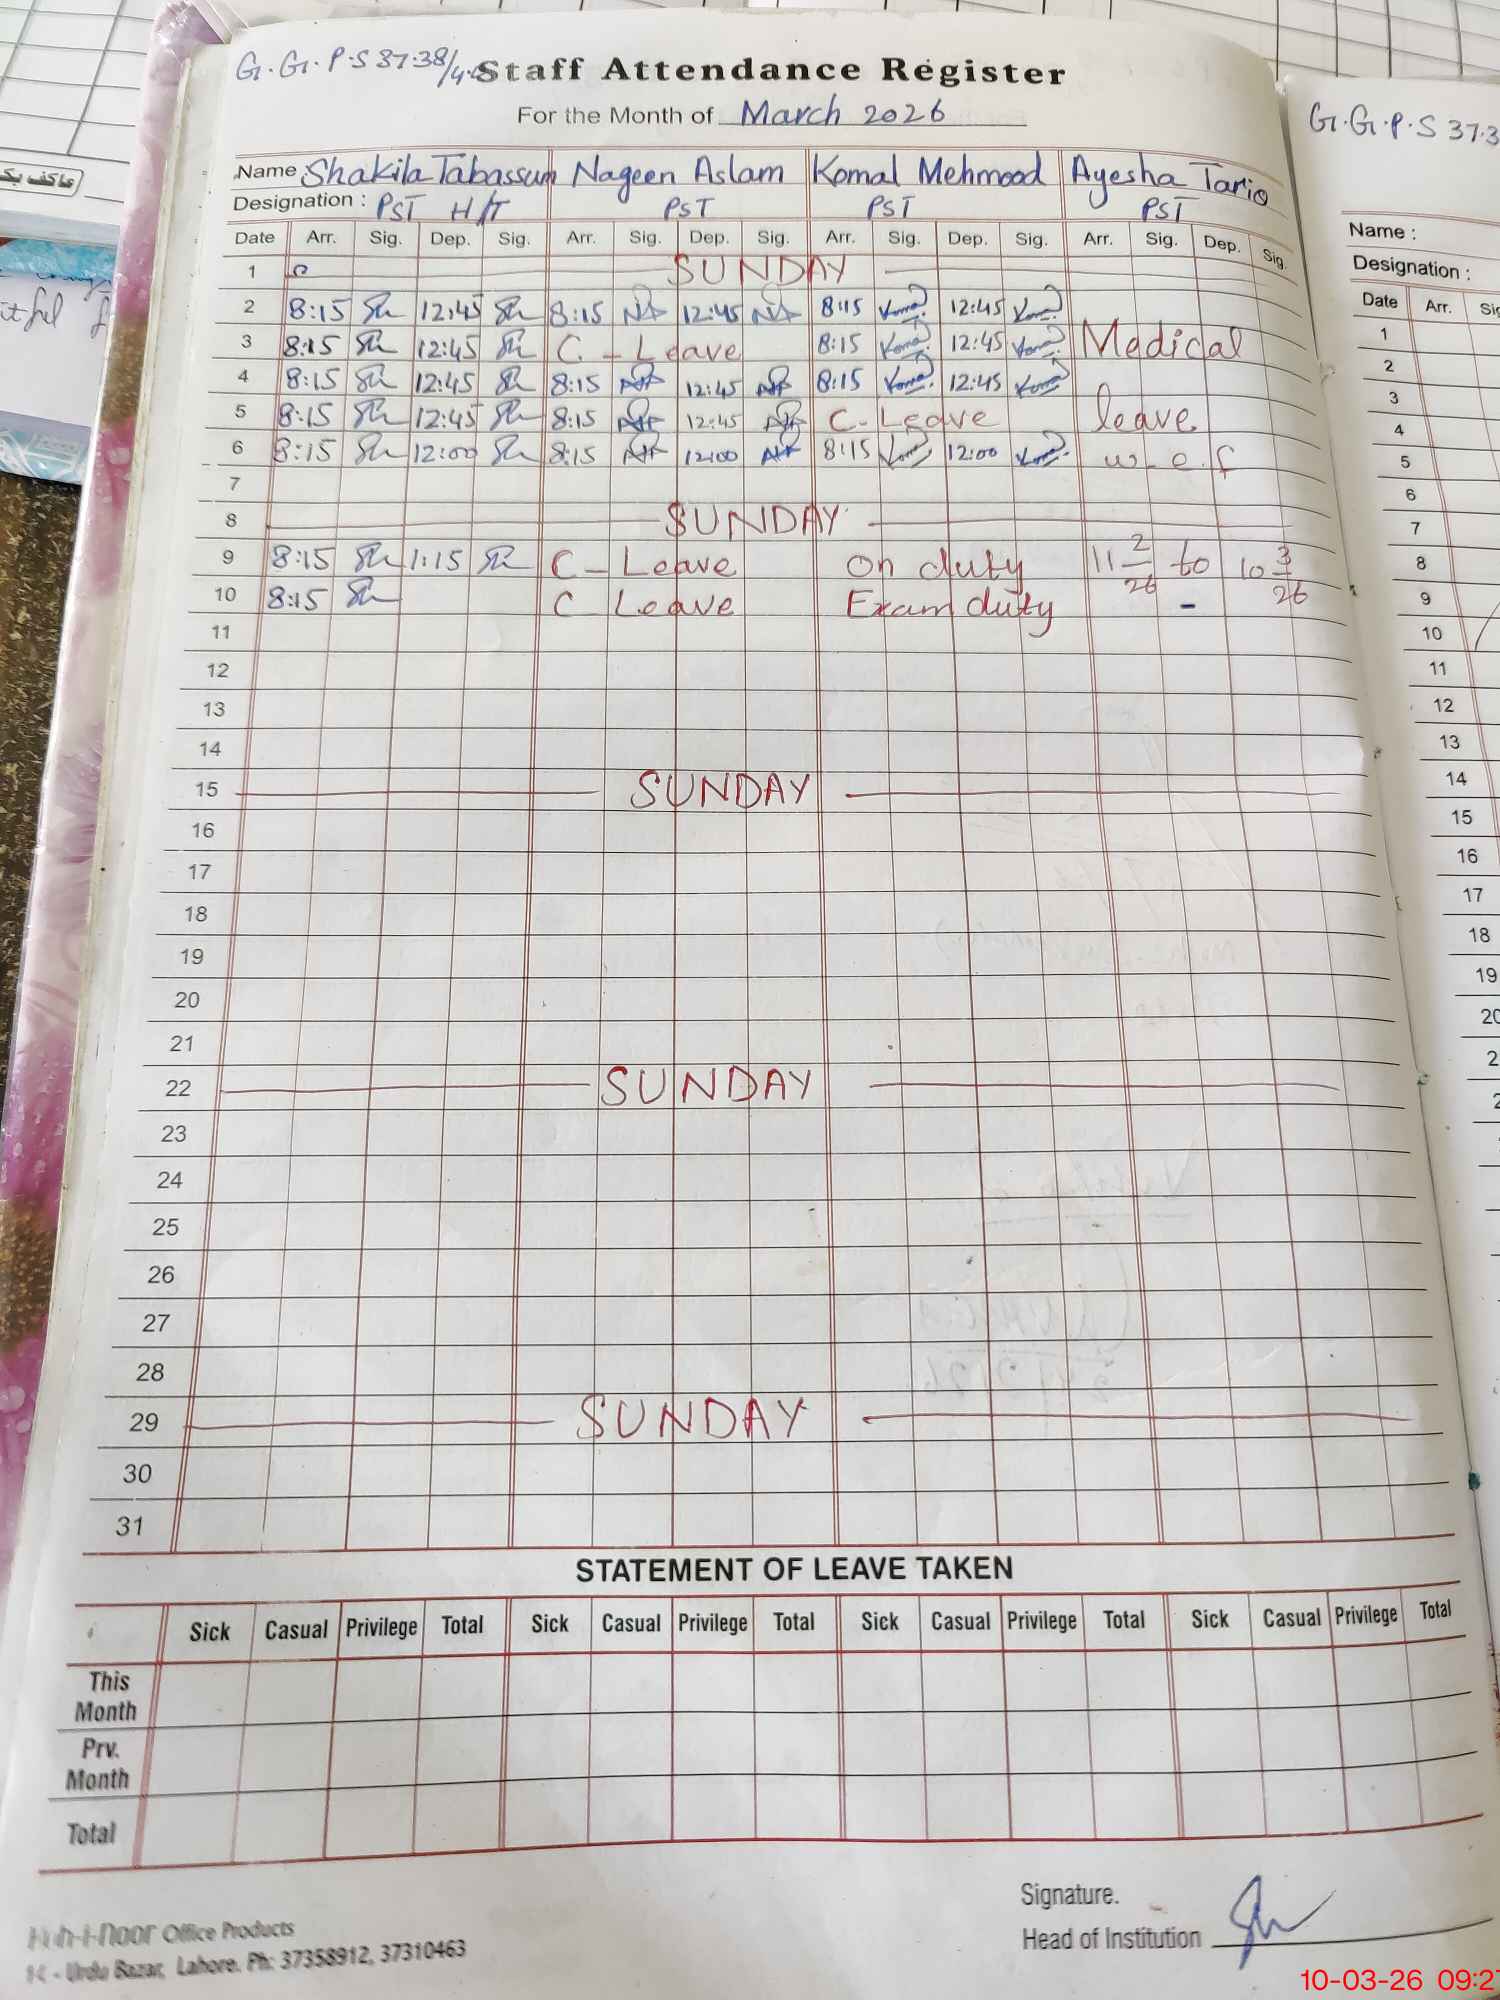 G.G.P.S 37.38/4.L
Staff Attendance Register
For the Month of March 2026
Name : Shakila Tabassum Nageen Aslam Komal Mehmood Ayesha Tariq
Designation : PST H/T PST PST PST
Date Arr. Sig. Dep. Sig. Arr. Sig. Dep. Sig. Arr. Sig. Dep. Sig. Arr. Sig. Dep. Sig.
1 SUNDAY
2 8:15 12:45 8:15 12:45 8:15 12:45
3 8:15 12:45 C - Leave 8:15 12:45 Medical
4 8:15 12:45 8:15 12:45 8:15 12:45
5 8:15 12:45 8:15 12:45 C-Leave leave
6 8:15 12:00 8:15 12:00 8:15 12:00 w.e.f
7
8 SUNDAY
9 8:15 1:15 C - Leave On duty 11 2/26 to 10 3/26
10 8:15 C Leave Exam duty -
11
12
13
14
15 SUNDAY
16
17
18
19
20
21
22 SUNDAY
23
24
25
26
27
28
29 SUNDAY
30
31
STATEMENT OF LEAVE TAKEN
Sick Casual Privilege Total Sick Casual Privilege Total Sick Casual Privilege Total Sick Casual Privilege Total
This Month
Prv. Month
Total
Signature.
Head of Institution
Koh-i-noor Office Products
Urdu Bazar, Lahore. Ph: 37358912, 37310463
G.G.P.S 37.3
Name :
Designation :
Date Arr.
1
2
3
4
5
6
7
8
9
10
11
12
13
14
15
16
17
18
19
20
10-03-26 09:27